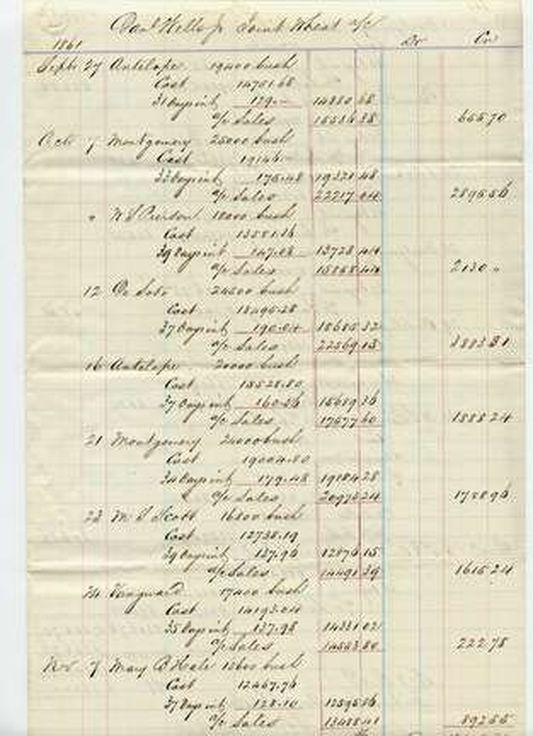 Danl Wells Jr Joint Wheat a/c
1861 Dr Cr
Sept 27 Antelope 19400 bush
Cost 14751.68
31 Days int 129.— 14880 68
a/c Sales 15536 38 655 70
Octo 7 Montgomery 25000 bush
Cost 19146—
33 Days int 175.48 19321 48
a/c Sales 22217 04 2895 56
" W S Pierson 18000 bush
Cost 13581.36
39 Days int 147.08 13728 44
a/c Sales 15858 44 2130 "
12 De Soto 24500 bush
Cost 18495.28
37 Days int 190.04 18685 32
a/c Sales 22569 13 3883 81
16 Antelope 20000 bush
Cost 15528.80
37 Days int 160.56 15689 36
a/c Sales 17577 60 1888 24
21 Montgomery 24000 bush
Cost 19004.80
34 Days int 179.48 19184 28
a/c Sales 20943 24 1758 96
23 M S Scott 16800 bush
Cost 12738.19
39 Days int 137.96 12876 15
a/c Sales 14491 39 1615 24
24 Vanguard 17400 bush
Cost 14193.04
35 Days int 137.98 14331 02
a/c Sales 14553 80 222 78
Nov 7 Mary B Hale bush
Cost 12467.76
37 Days int 128.10 12595 86
a/c Sales 13488 41 892 55